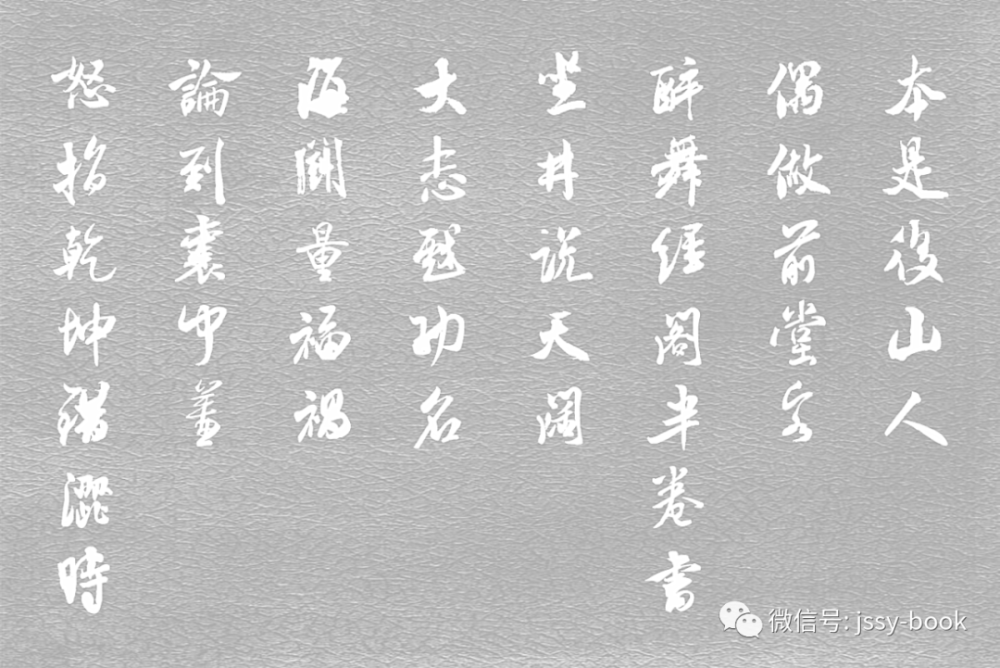 本是後山人
偶做前堂客
醉舞經閣半卷書
坐井説天闊
大志戲功名
海鬪量福禍
論到囊中羞
怒指乾坤錯澀時
微信号: jssy-book